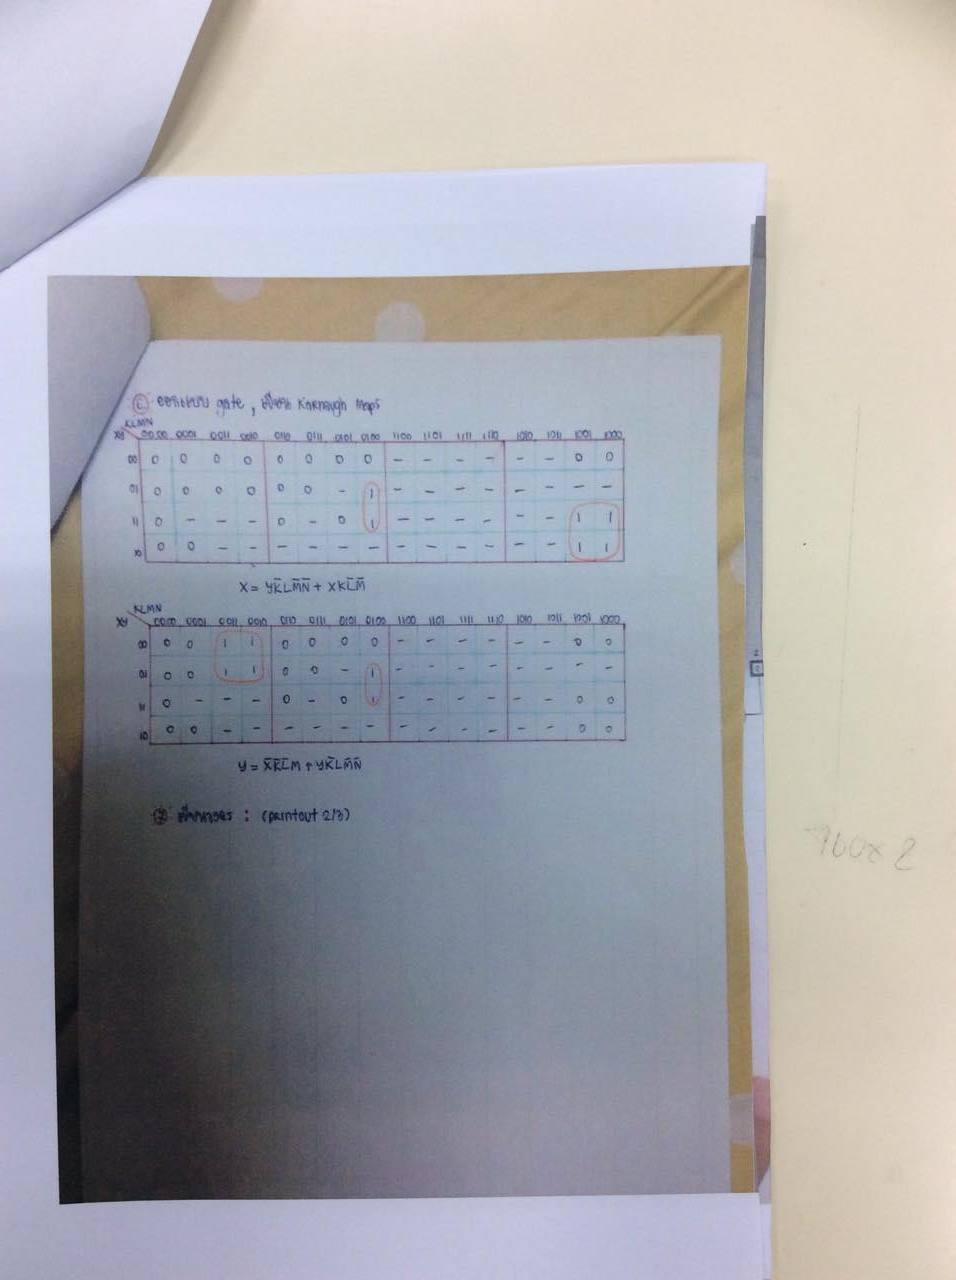 ⓒ ออกแบบ gate , เขียน Karnaugh maps
KLMN
XY 0000 0001 0011 0010 0110 0111 0101 0100 1100 1101 1111 1110 1010 1011 1001 1000
00 0 0 0 0 0 0 0 0 - - - - - - 0 0
01 0 0 0 0 0 0 - 1 - - - - - - - -
11 0 - - - 0 - 0 1 - - - - - - 1 1
10 0 0 - - - - - - - - - - - - 1 1
X = YK̄LM̄N̄ + XKL̄M̄
KLMN
XY 0000 0001 0011 0010 0110 0111 0101 0100 1100 1101 1111 1110 1010 1011 1001 1000
00 0 0 1 1 0 0 0 0 - - - - - - 0 0
01 0 0 1 1 0 0 - 1 - - - - - - - -
11 0 - - - 0 - 0 1 - - - - - - 0 0
10 0 0 - - - - - - - - - - - - 0 0
Y = X̄K̄L̄M + YK̄LM̄N̄
: (printout 2/3)
700x2